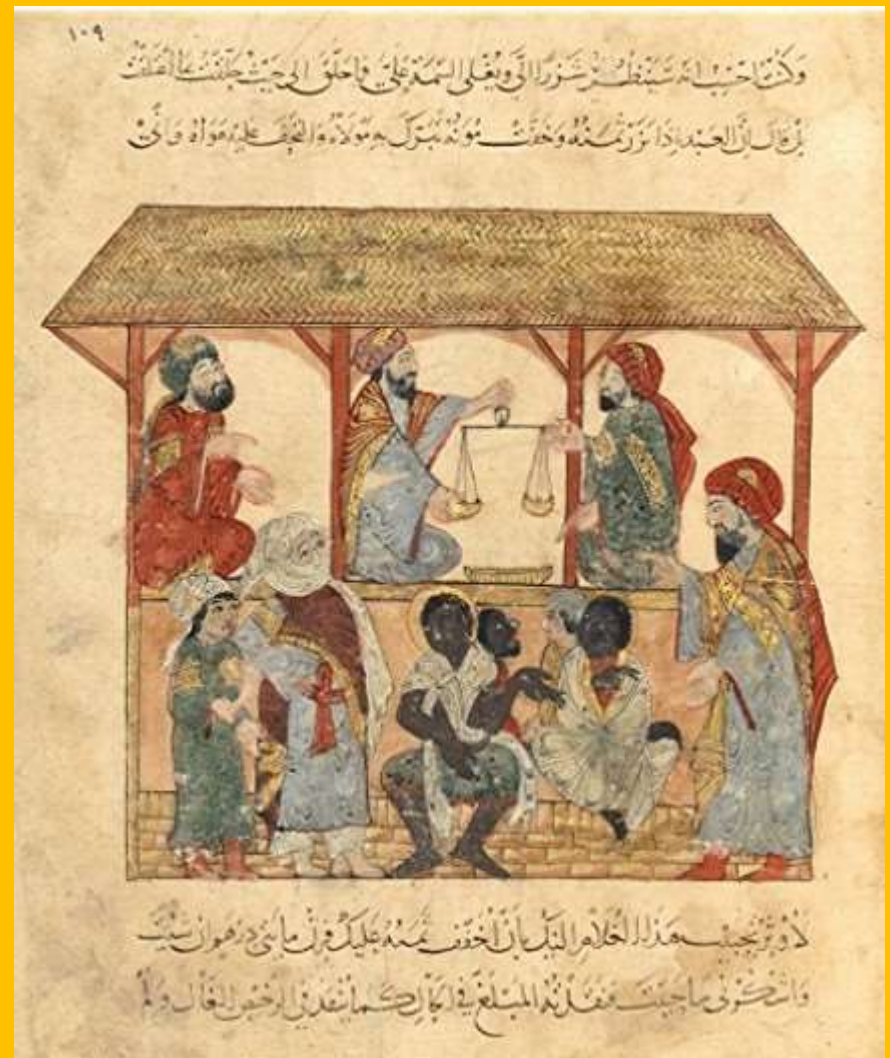 ١٠٩
وكنت احسب انه سينظر شزرا الي ويغلي السيمة علي فما حلق الى حيث حلقت
بل قال ان العبد اذا نزر ثمنه وخفت مونه تبرك به مولاه والتحف عليه هواه واني
لاوثر تحبيب هذا الغلام اليك بان اخفف ثمنه عليك فزن مايتي درهم ان شيت
واشكر لي ما حييت فنقدته المبلغ في الحال كما ينقد في الرخيص الغال ولم